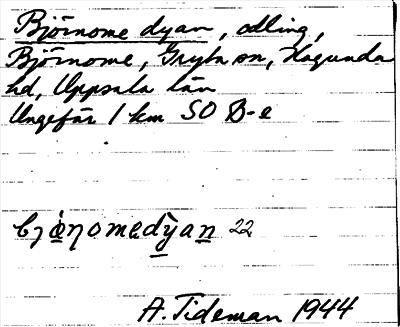 Björnome dyan, odling,
Björnome, Gryta sn, Hagunda
hd, Uppsala län
Ungefär 1 km SO B-e
bjö̀ṇomedỳan 22
A. Tideman 1944